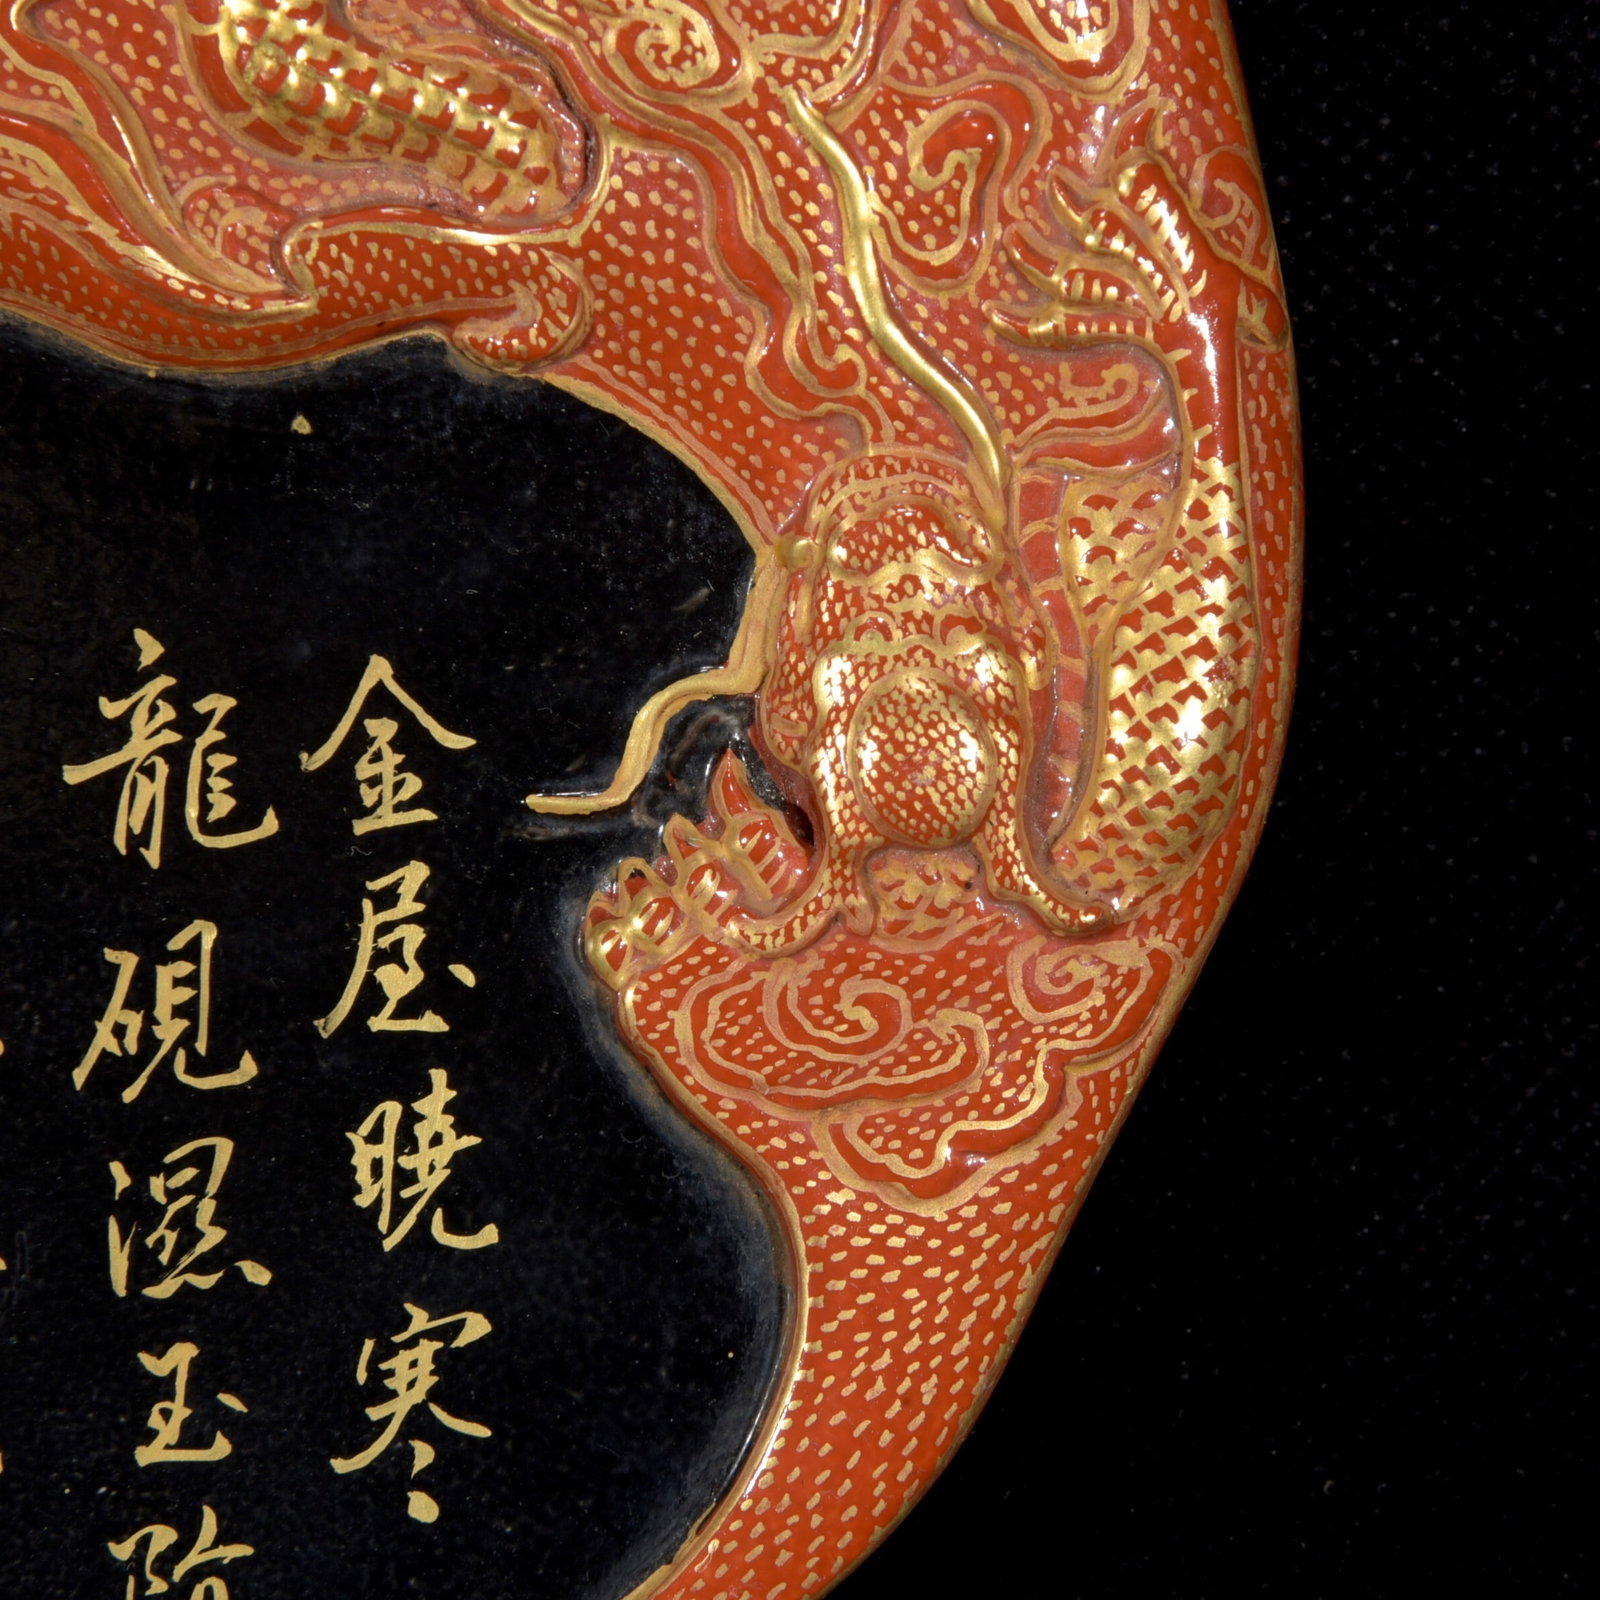 金屋曉寒
龍硯濕玉階